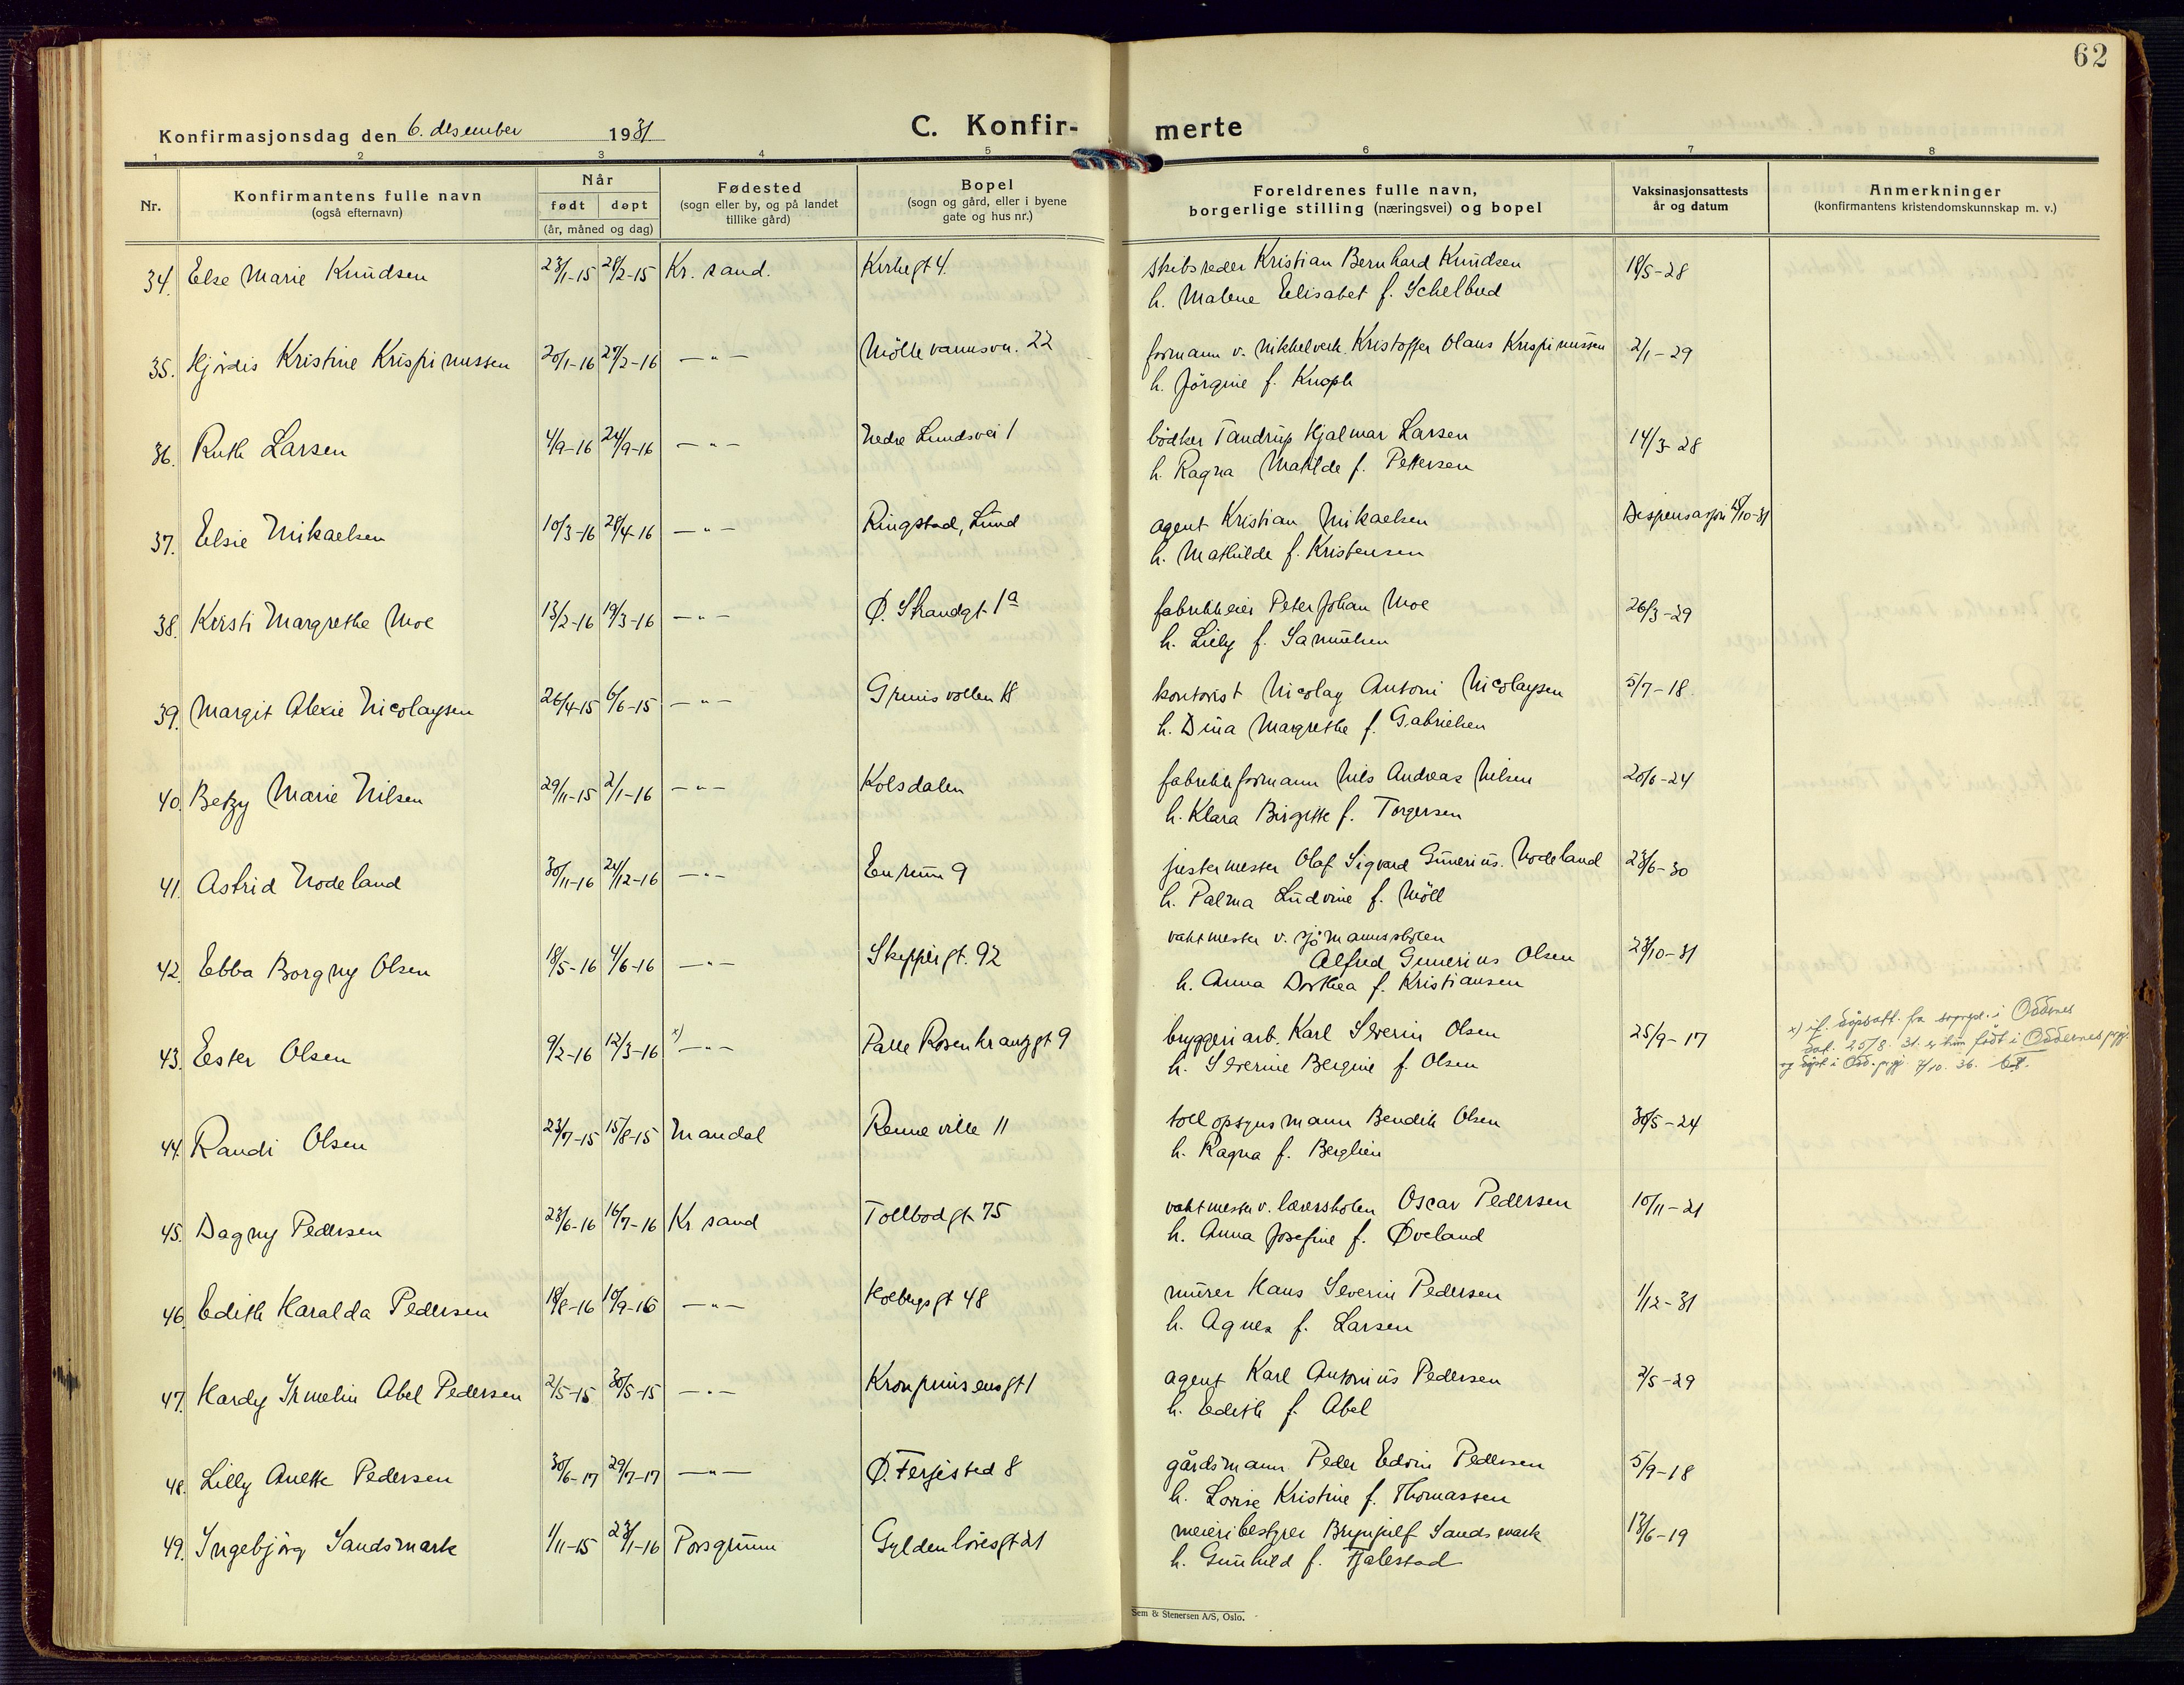 62
Konfirmasjonsdag den 6. desember 1931
C. Konfir- merte
1 2 3 4 5 6 7 8
Nr.
Konfirmantens fulle navn
(også efternavn)
Når
født døpt
(år, måned og dag)
Fødested
(sogn eller by, og på landet
tillike gård)
Bopel
(sogn og gård, eller i byene
gate og hus nr.)
Foreldrenes fulle navn,
borgerlige stilling (næringsvei) og bopel
Vaksinasjonsattests
år og datum
Anmerkninger
(konfirmantens kristendomskunnskap m. v.)
34. Else Marie Knudsen 23/1-15 28/2-15 Kr. sand. Kirkegt 4. skibsreder Kristian Bernhard Knudsen 18/5-28
h. Malene Elisabet f. Schelbred
35. Hjördis Kristine Krispinussen 20/1-16 27/2-16 —"— Möllevannsvn. 22 formann v. nikkelverk. Kristoffer Olaus Krispinussen 2/1-29
h. Jörgine f. Knoph
36. Ruth Larsen 4/9-16 24/9-16 —"— Nedre Lundsvei 1 bödker Tandrup Hjalmar Larsen 14/3-28
h. Ragna Matilde f. Pettersen
37. Elsie Mikaelsen 10/3-16 28/4-16 —"— Ringstad, Lund agent Kristian Mikaelsen Dispensasjon 18/10-31
h. Mathilde f. Kristensen
38. Kirsti Margrethe Moe 13/2-16 19/3-16 —"— Ø. Strandgt. 1a fabrikkeier Peter Johan Moe 26/3-29
h. Lilly f. Samuelsen
39. Margit Alexie Nicolaysen 26/4-15 6/6-15 —"— Grimsvollen 18 kontorist Nicolay Antoni Nicolaysen 5/7-18
h. Dina Margrethe f. Gabrielsen
40. Betzy Marie Nilsen 29/11-15 2/1-16 —"— Kolsdalen fabrikkformann Nils Andreas Nilsen 20/6-24
h. Klara Birgitte f. Torgersen
41. Astrid Nodeland 30/11-16 24/12-16 —"— Enrum 9 pustermester Olaf Sigvard Gunerius. Nodeland 23/6-30
h. Palma Ludvine f. Möll
42. Ebba Borgny Olsen 18/5-16 4/6-16 —"— Skippergt. 92 vaktmester v. sjömannsskolen
Alfred Gunerius Olsen 23/10-31
h. Anna Dorthea f. Kristiansen
43. Ester Olsen 9/2-16 12/3-16 x) —"— Palle Rosenkrantzgt 9 bryggeriarb. Karl Severin Olsen 25/9-17
h. Severine Bergine f. Olsen
x) if. dåpsatt. fra sogepr. i Oddernes
dat. 25/8. 31. er hun födt i Oddernes prgj.
og döpt i Odd. prgj. 7/10. 36.
44. Randi Olsen 23/7-15 15/8-15 Mandal Renneville 11 tollopsynsmann Bendik Olsen 30/5-24
h. Ragna f. Berglien
45. Dagny Pedersen 23/6-16 16/7-16 Kr sand Tollbodgt. 75 vaktmester v. lærerskolen Oscar Pedersen 10/11-21
h. Anna Josefine f. Øveland
46. Edith Haralda Pedersen 18/8-16 10/9-16 —"— Holbergsgt 48 murer Hans Severin Pedersen 1/12-31
h. Agnes f. Larsen
47. Hardy Irmelin Abel Pedersen 2/5-15 30/5-15 —"— Kronprinsensgt 1 agent Karl Antonius Pedersen 2/5-29
h. Edith f. Abel
48. Lilly Anette Pedersen 30/6-17 29/7-17 —"— Ø. Ferjested 8 gårdsmann Peder Edvin Pedersen 5/9-18
h. Lovise Kristine f. Thomassen
49. Ingebjörg Sandsmark 1/11-15 23/1-16 Porsgrunn Gyldenlövesgt 21 meieribestyrer Brynjulf Sandsmark 13/6-19
h. Gunhild f. Tjalestad
Sem & Stenersen A/S, Oslo.